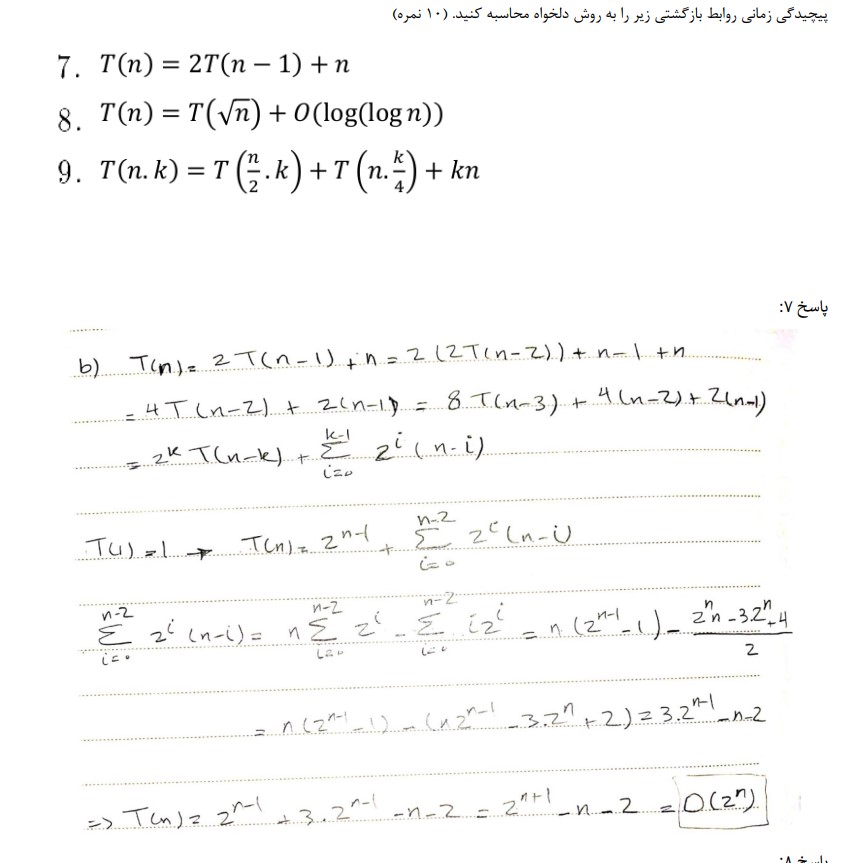 پیچیدگی زمانی روابط بازگشتی زیر را به روش دلخواه محاسبه کنید. (۱۰ نمره)
7. T(n) = 2T(n − 1) + n
8. T(n) = T(√n) + O(log(log n))
9. T(n. k) = T(n/2 . k) + T(n. k/4) + kn
پاسخ ۷:
b) T(n) = 2T(n-1) + n = 2(2T(n-2)) + n-1 + n
= 4T(n-2) + 2(n-1) = 8T(n-3) + 4(n-2) + 2(n-1)
= 2^k T(n-k) + Σ_{i=0}^{k-1} 2^i (n-i)
T(1) = 1 → T(n) = 2^{n-1} + Σ_{i=0}^{n-2} 2^i (n-i)
Σ_{i=0}^{n-2} 2^i (n-i) = n Σ_{i=0}^{n-2} 2^i - Σ_{i=0}^{n-2} i2^i = n(2^{n-1} - 1) - (2^n n - 3.2^n + 4)/2
= n(2^{n-1} - 1) - (n2^{n-1} - 3.2^n + 2) = 3.2^{n-1} - n - 2
=> T(n) = 2^{n-1} + 3.2^{n-1} - n - 2 = 2^{n+1} - n - 2 = O(2^n)
پاسخ ۸: